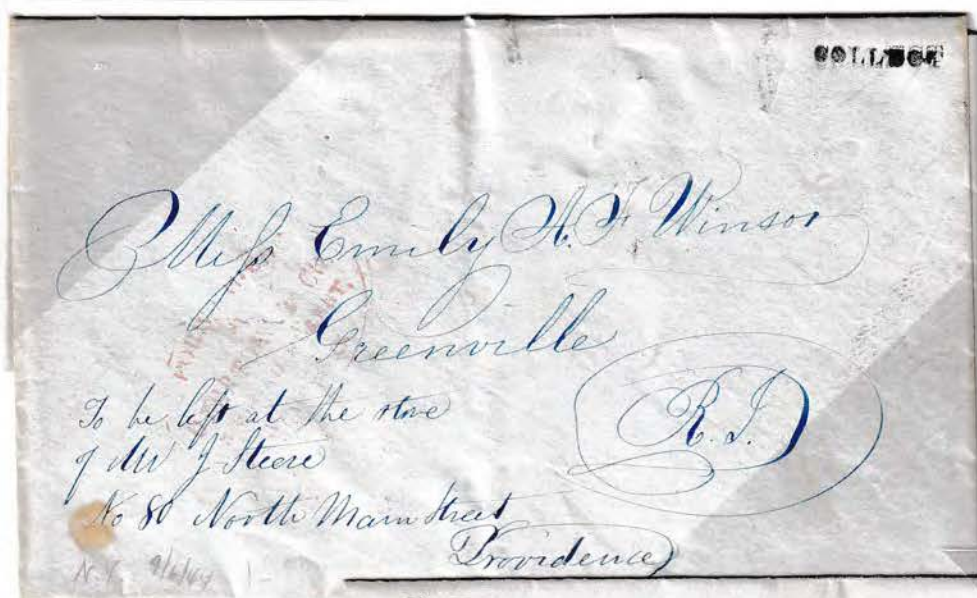 COLLECT
Miss Emily A. F. Winsor
Greenville
R. I.
To be left at the store
of Mr J Steere
No 80 North Main Street
Providence
N.Y.